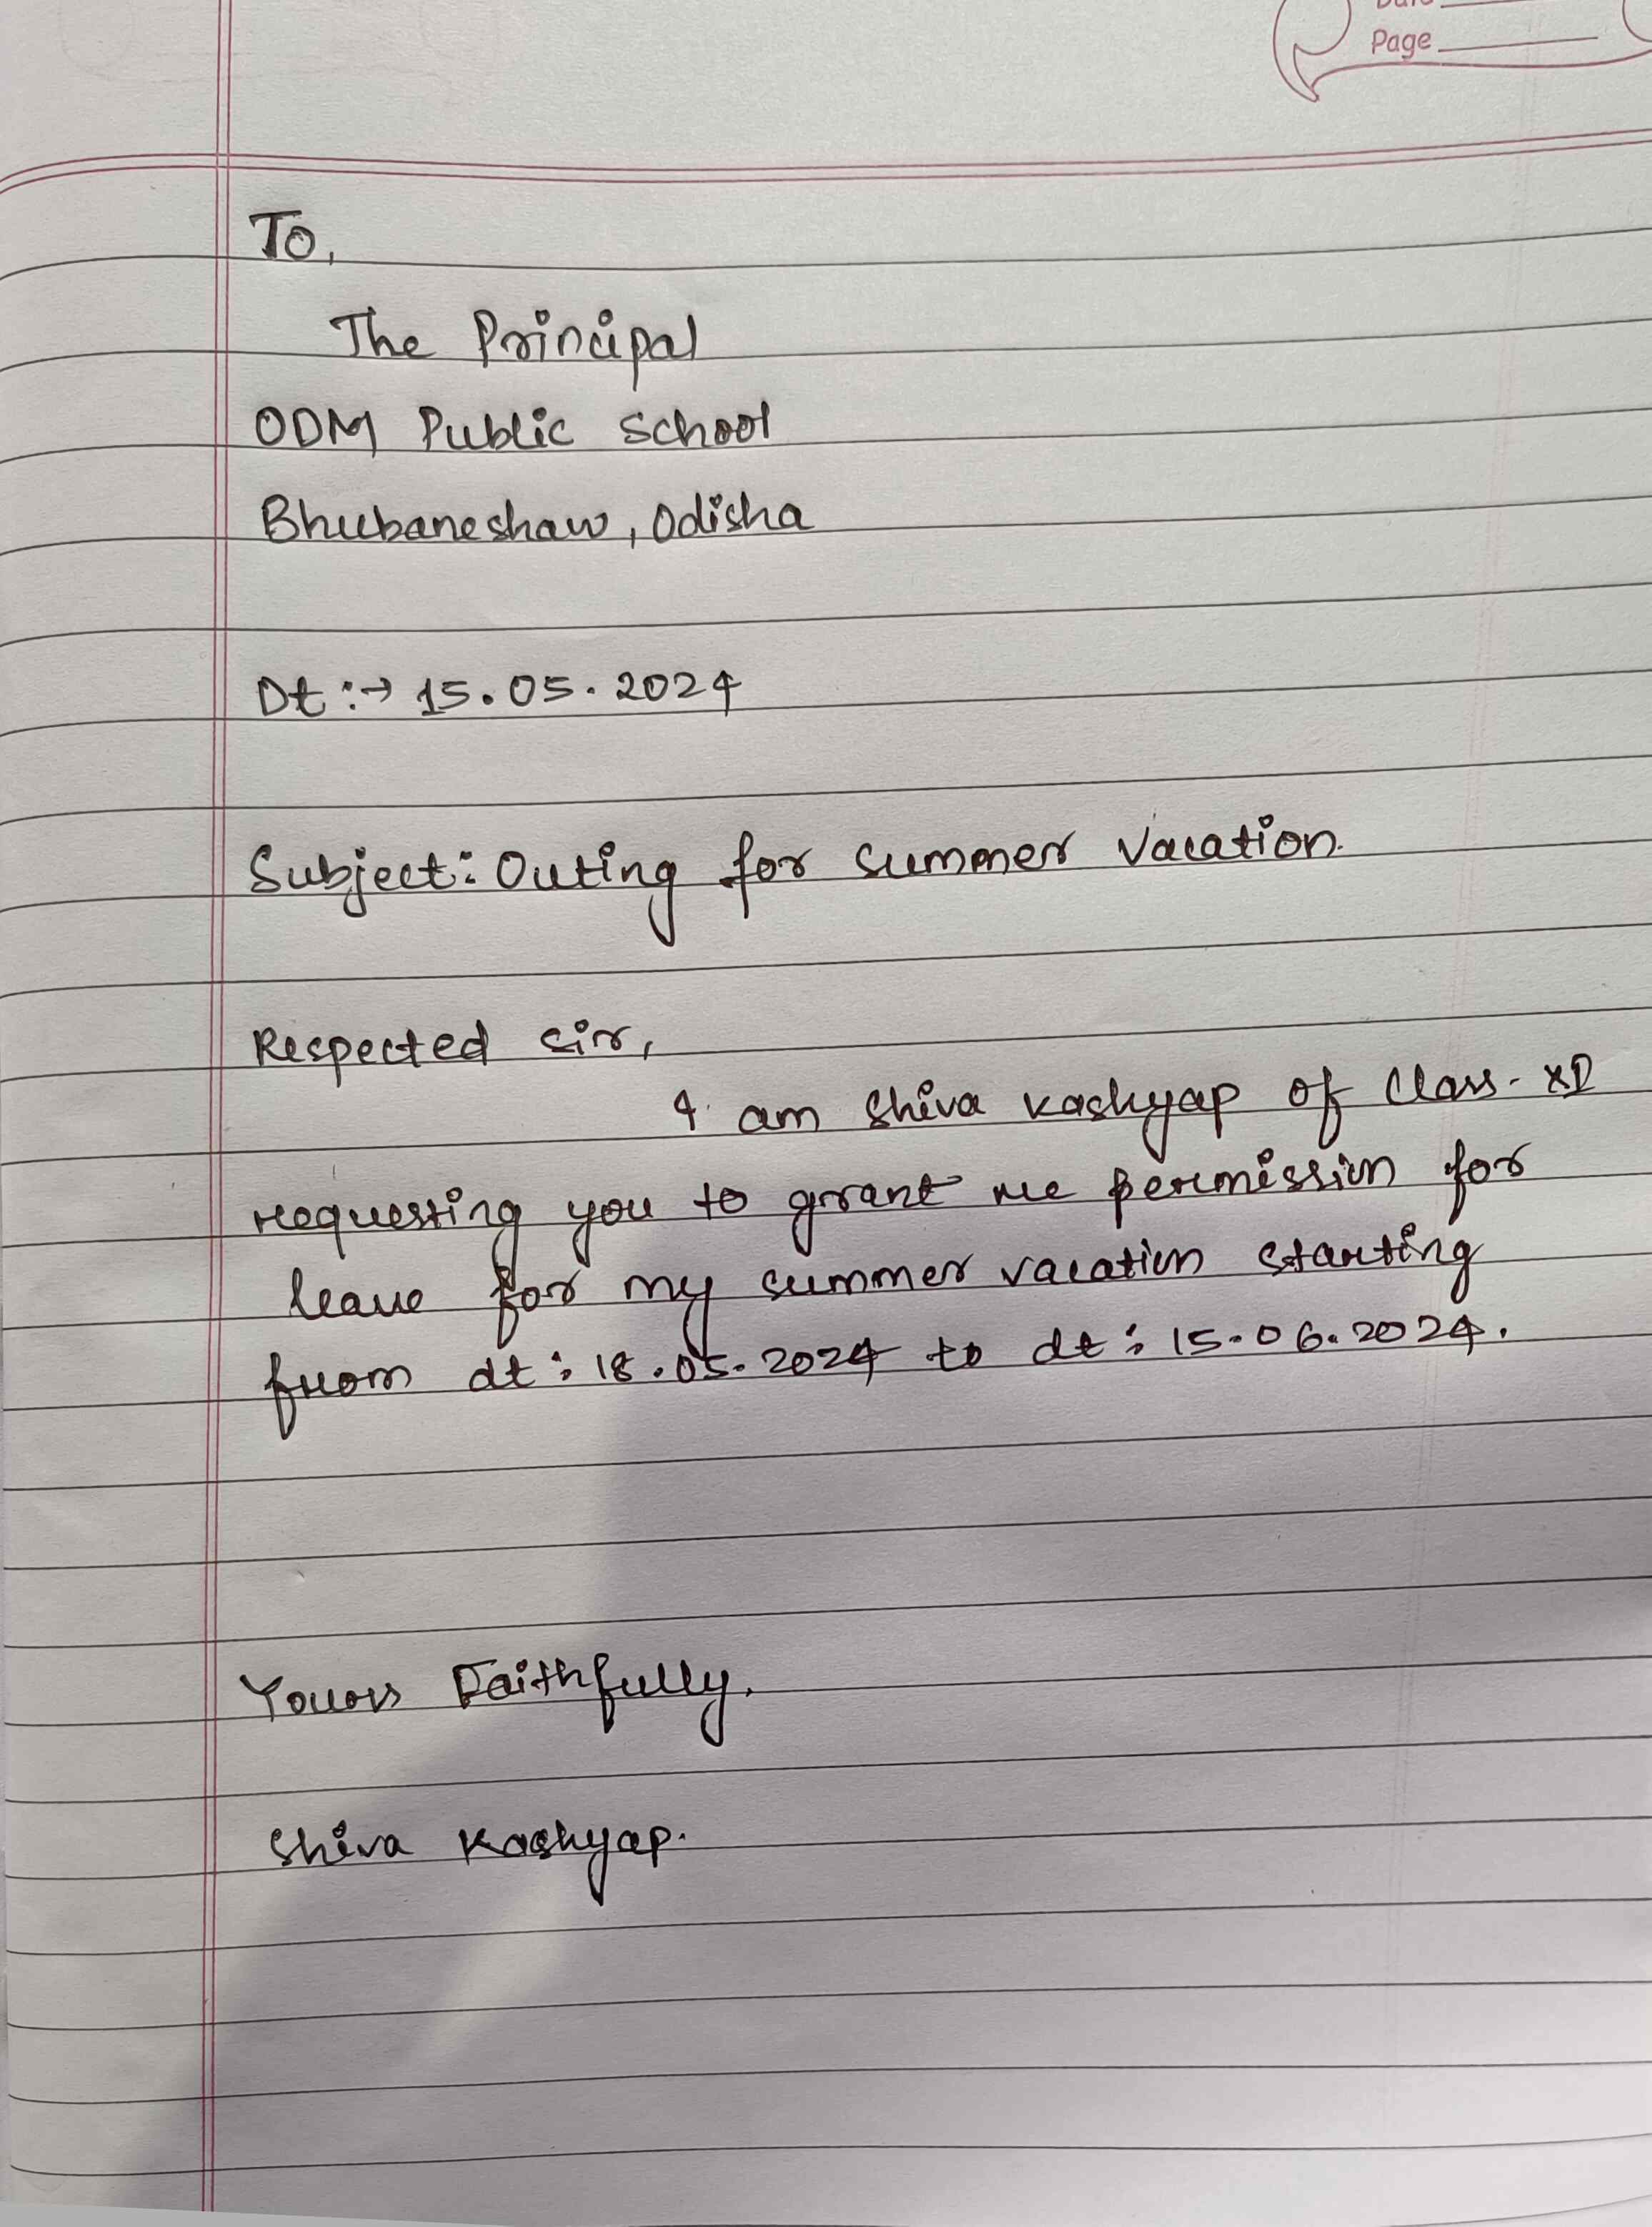 Page
To,
The Principal
ODM Public School
Bhubaneshaw, Odisha
Dt :→ 15.05.2024
Subject: Outing for summer vacation.
Respected sir,
I am Shiva Kashyap of Class- XD
requesting you to grant me permission for
leave for my summer vacation starting
from dt : 18.05.2024 to dt : 15.06.2024.
Yours Faithfully,
Shiva Kashyap.